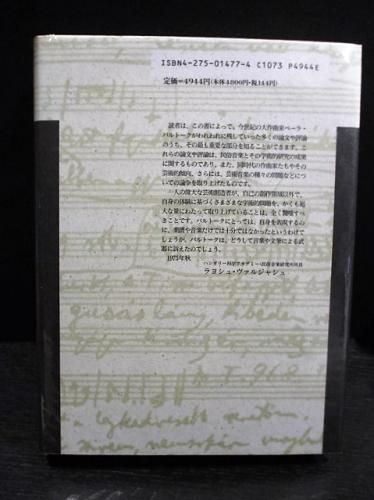 ISBN4-275-01477-4 C1073 P4944E
定価=4944円(本体4800円・税144円)
読者は、この書によって、今世紀の大作曲家ベーラ・
バルトークがわれわれに残していった多くの論文や評論
のうち、その最も重要な部分を知ることができます。こ
れらの論文や評論は、民俗音楽とその学術的研究の成果
に関するものであり、また、同時代の作曲家たちやその
芸術的傾向、さらには、芸術音楽の種々の問題などにつ
いての論争を取り上げたものです。
一人の偉大な芸術創造者が、自己の創作領域以外で、
自身の体験に基づくさまざまな学術的問題を、かくも膨
大な量にわたって取り上げていることは、全く驚嘆すべ
きことです。バルトークにとっては、自分を表現するの
に、楽譜や音楽だけでは十分ではなかったというわけで
しょうが、バルトークは、どうして言葉や文筆による武
器に訴えたのでしょう。
1973年秋
ハンガリー科学アカデミー民俗音楽研究所所員
ラヨシュ・ヴァルジャシュ